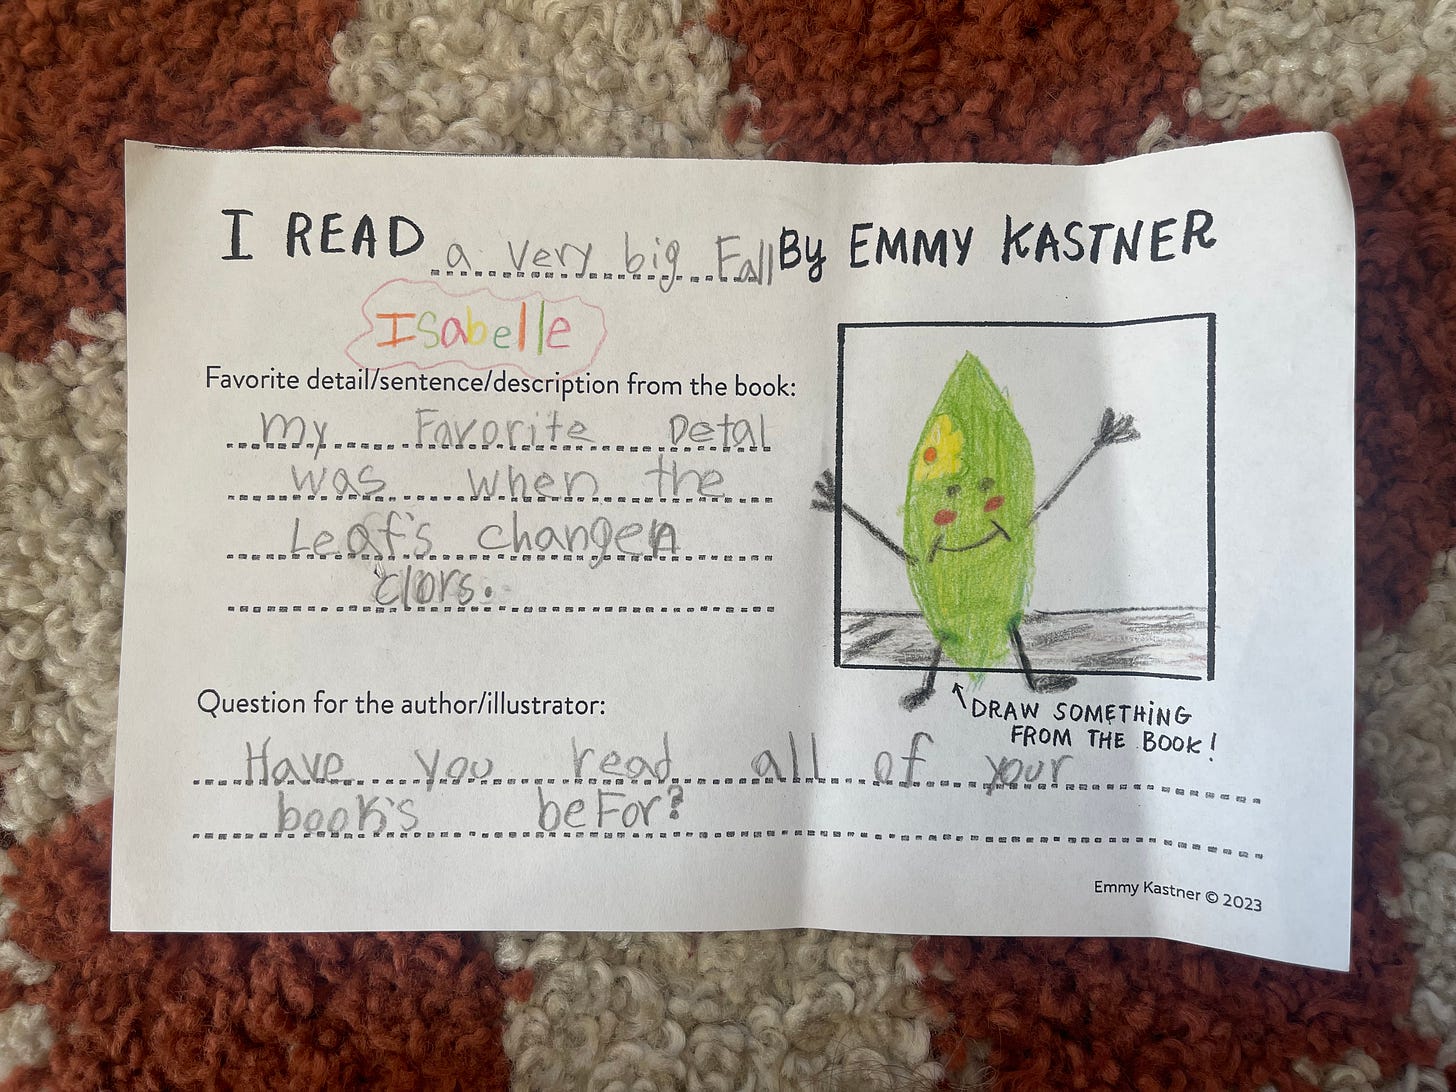 I READ a very big Fall By EMMY KASTNER
Isabelle
Favorite detail/sentence/description from the book:
my Favorite Detal
was when the
Leaf's changen
clors.
Question for the author/illustrator:
Have you read all of your
book's beFor?
DRAW SOMETHING
FROM THE BOOK!
Emmy Kastner © 2023